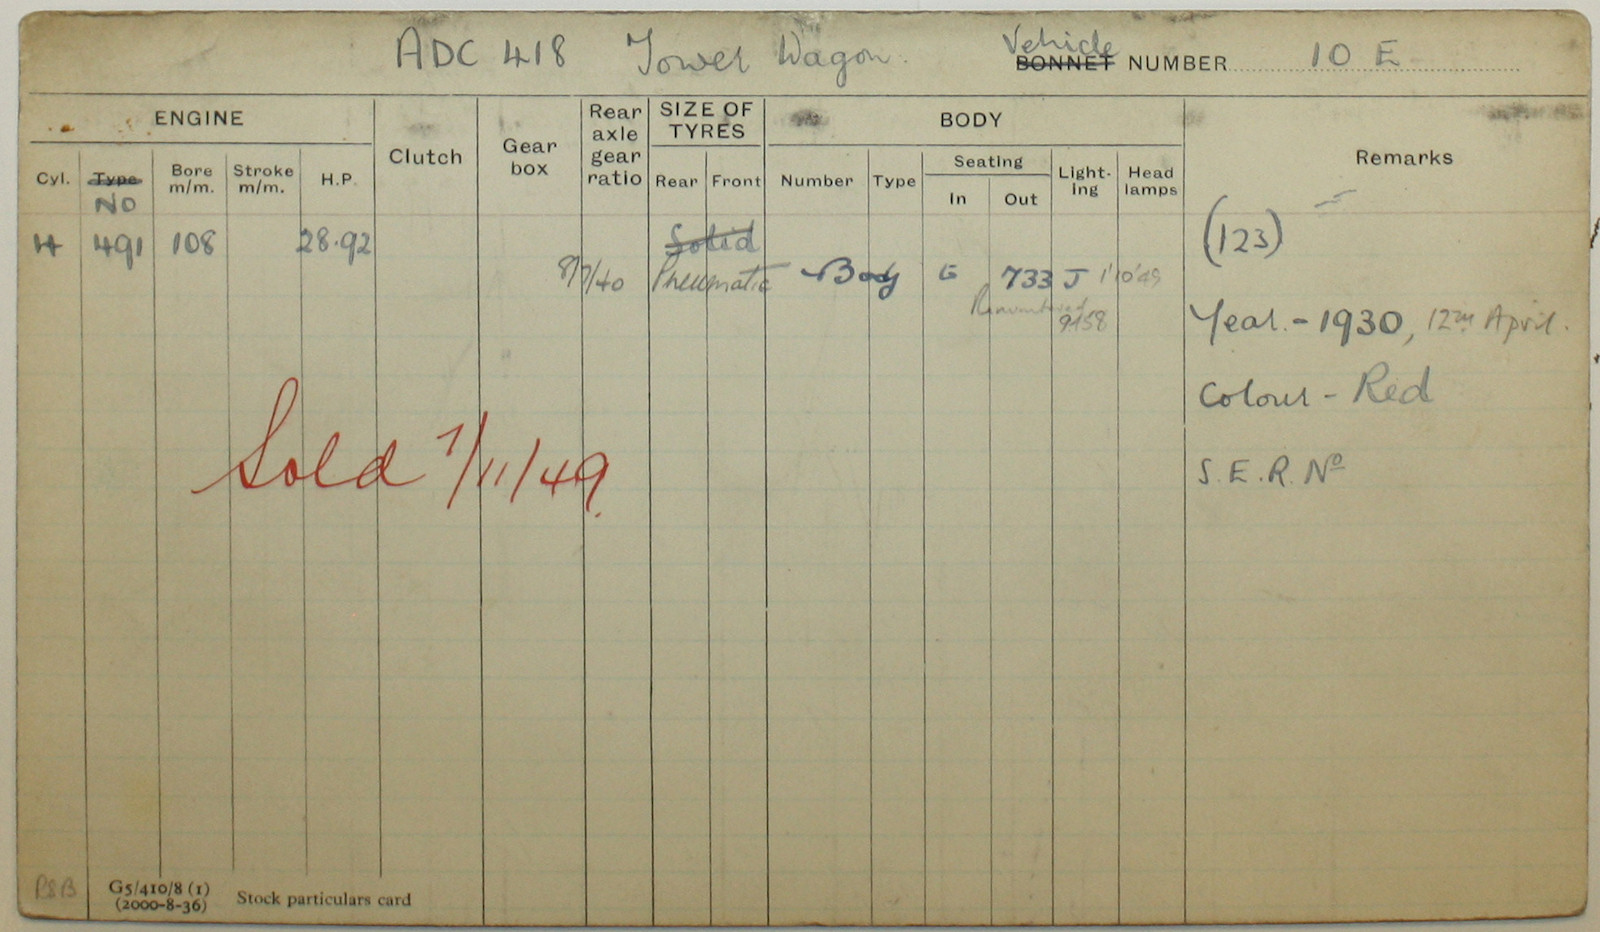 ADC 418 Tower Wagon. Vehicle
BONNET NUMBER 10 E
ENGINE Clutch Gear box Rear axle gear ratio SIZE OF TYRES BODY Remarks
Cyl. Type Bore m/m. Stroke m/m. H.P. Rear Front Number Type Seating In Out Light-ing Head lamps
NO
4 491 108 28.92 Solid (123)
8/7/40 Pneumatic Body G 733 J 1'10'49
Renumbered
9158
Year. - 1930, 12th April.
Colour - Red
Sold 7/11/49
S.E.R. No
P&B G5/410/8 (1)
(2000-8-36) Stock particulars card